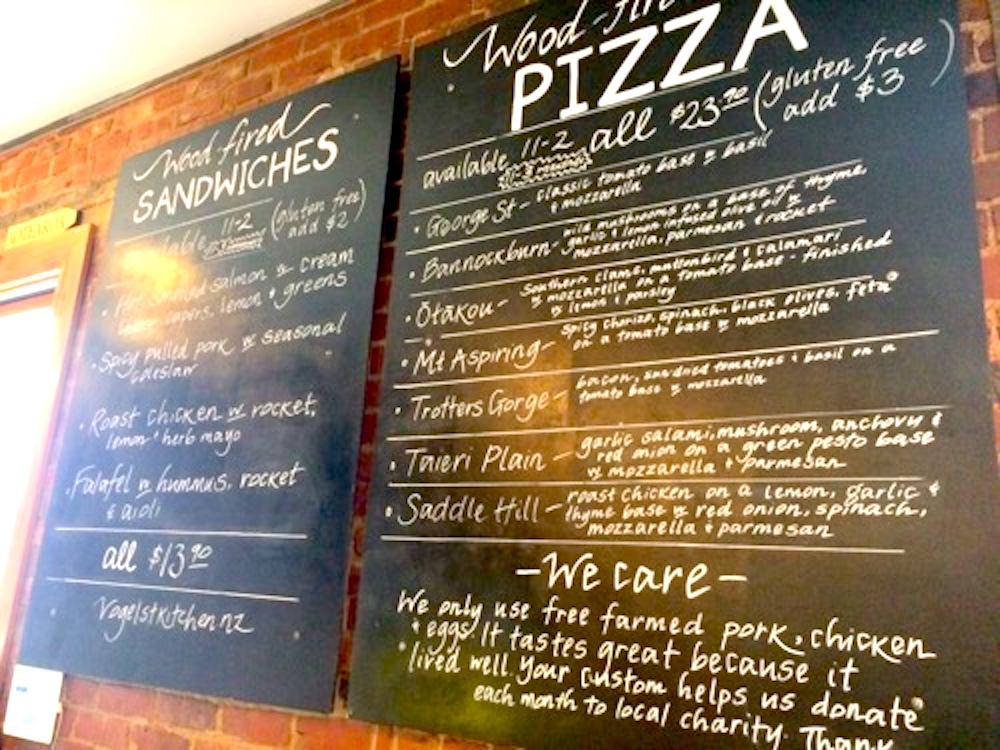 Wood fired
SANDWICHES
11-2 (gluten free)
add $2
smoked salmon w cream
capers, lemon + greens
• Spicy pulled pork w seasonal
coleslaw
• Roast chicken w rocket,
lemon + herb mayo
• Falafel w hummus, rocket
& aioli
all $13.90
Vogelstkitchen.nz
Wood-fire
PIZZA
available 11-2 all $23.90 (gluten free
add $3)
• George St - classic tomato base w basil
& mozzarella
• Bannockburn - wild mushrooms on a base of thyme,
garlic & lemon infused olive oil w
mozzarella, parmesan + rocket
• Ōtākou - Southern clams, muttonbird & calamari
w mozzarella on a tomato base - finished
w lemon & parsley
• Mt Aspiring - spicy chorizo, spinach, black olives, feta
on a tomato base w mozzarella
• Trotters Gorge - bacon, sundried tomatoes & basil on a
tomato base w mozzarella
• Taieri Plain - garlic salami, mushroom, anchovy &
red onion on a green pesto base
w mozzarella & parmesan
• Saddle Hill - roast chicken on a lemon, garlic &
thyme base w red onion, spinach,
mozzarella + parmesan
- We care -
We only use free farmed pork, chicken
+ eggs. It tastes great because it
lived well. Your custom helps us donate
each month to local charity. Thank